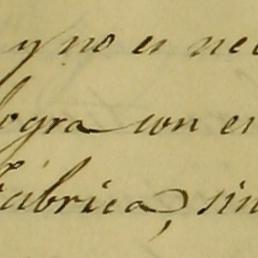 y no es nec
logra con es
Fábrica, sin